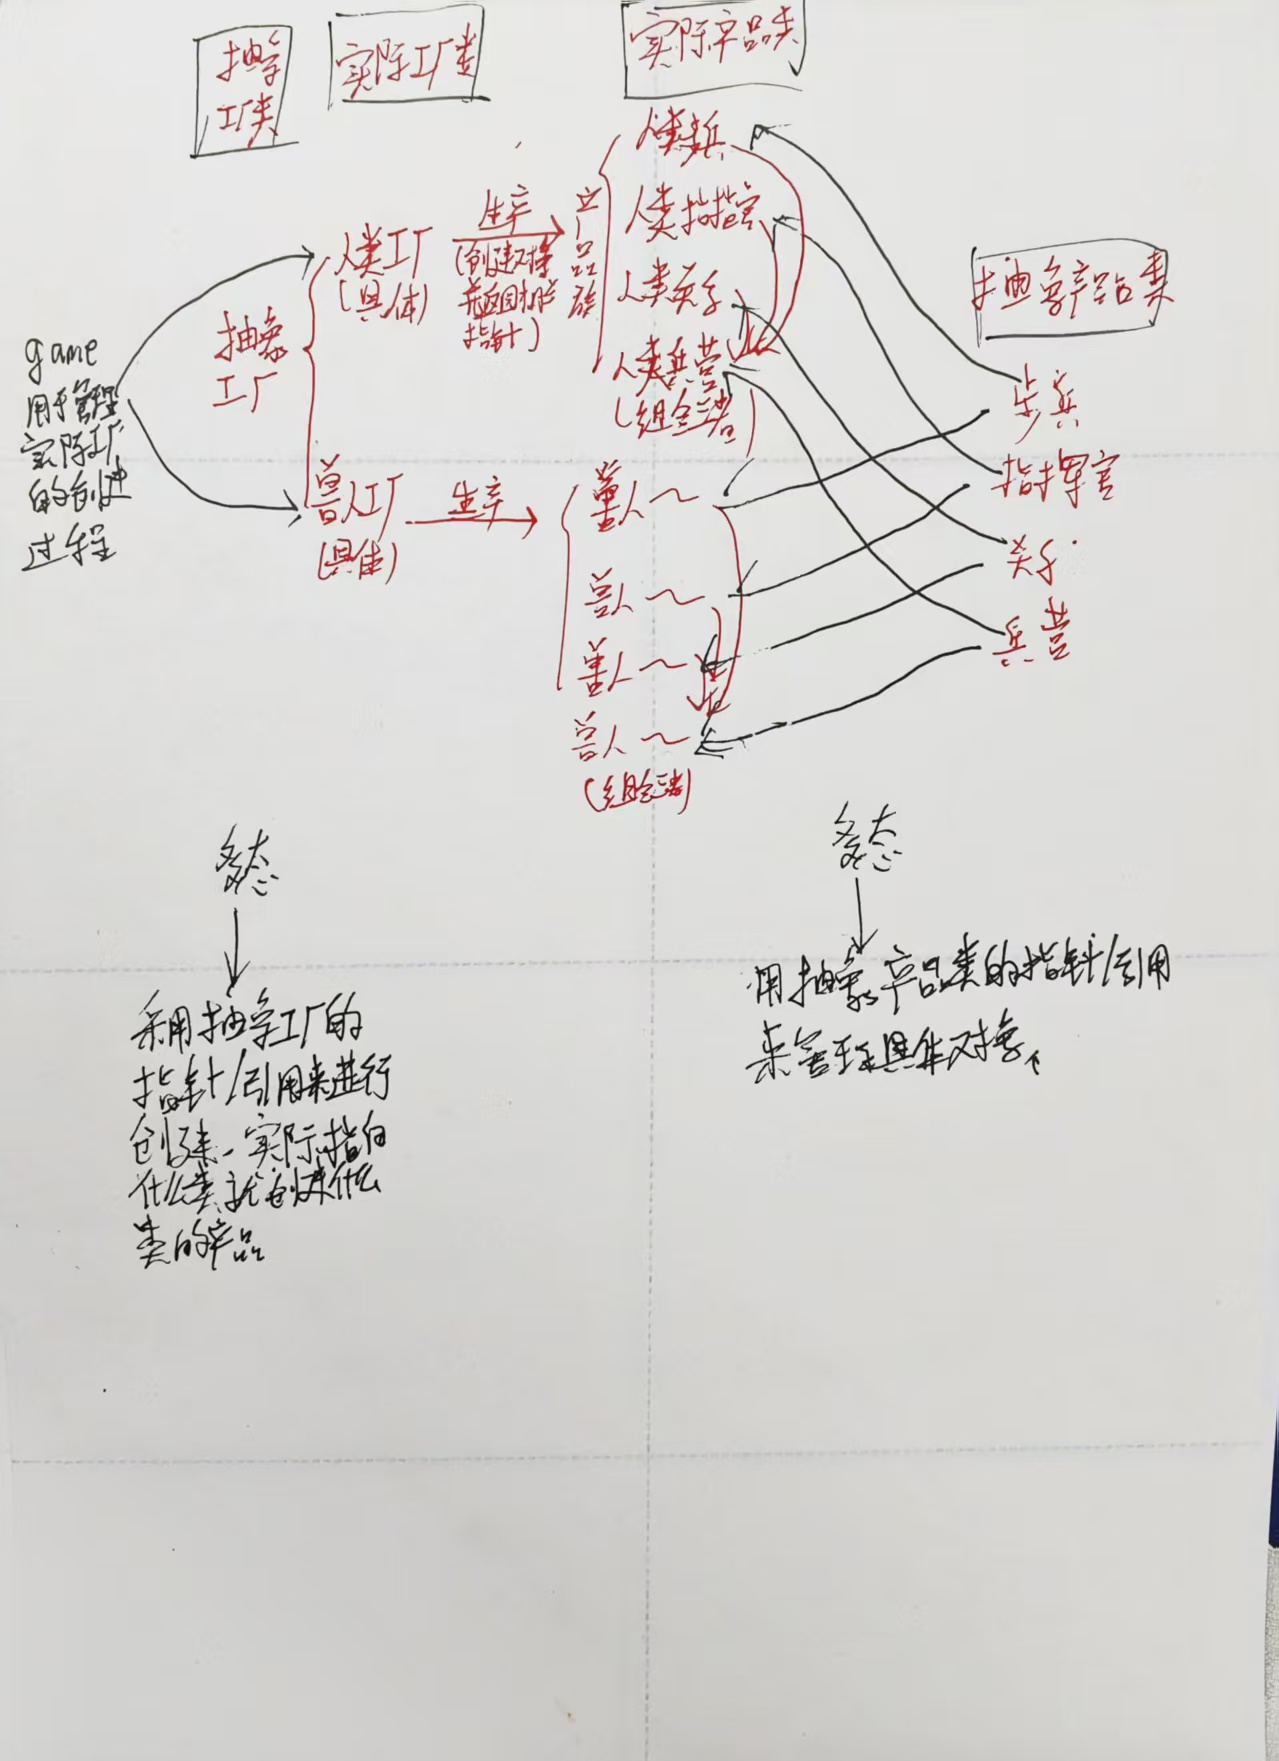 抽象
工厂类
实际工厂类
实际产品类
抽象产品类
game
用于管理
实际工厂
的创建
过程
抽象
工厂
人类工厂
(具体)
生产
(创建对象
并返回
指针)
产品族
人类步兵
人类指挥官
人类关子
人类兵营
(组合三者)
兽人工厂
(具体)
生产
兽人~
兽人~
兽人~
兽人~
(组合三者)
步兵
指挥官
关子
兵营
多态
采用抽象工厂的
指针/引用来进行
创建,实际指向
什么类就创建什么
类的产品
多态
用抽象产品类的指针/引用
来管理具体对象。